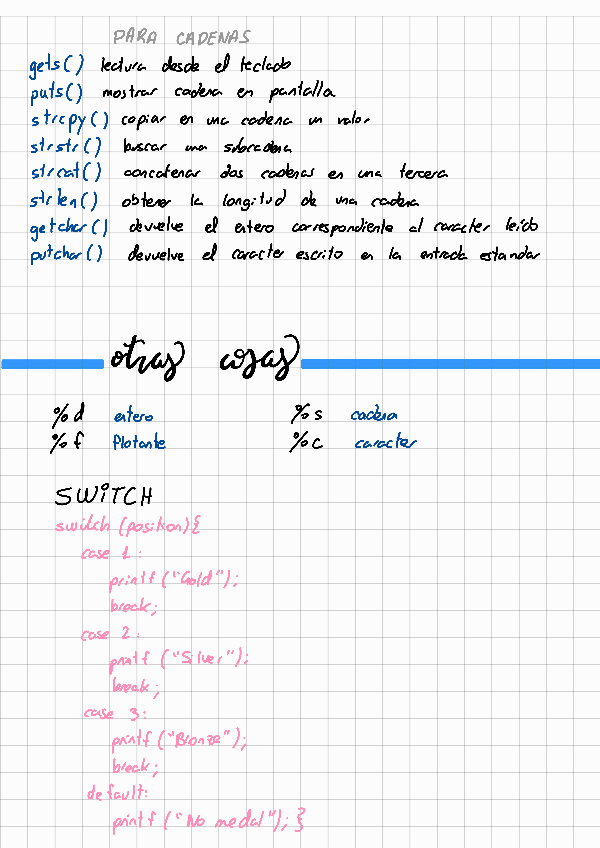 PARA CADENAS
gets() lectura desde el teclado
puts() mostrar cadena en pantalla
strcpy() copiar en una cadena un valor
strstr() buscar una subcadena
strcat() concatenar dos cadenas en una tercera
strlen() obtener la longitud de una cadena
getchar() devuelve el entero correspondiente al caracter leído
putchar() devuelve el caracter escrito en la entrada estandar
otras cosas
%d entero %s cadena
%f flotante %c caracter
SWITCH
switch (position){
case 1:
printf ("Gold");
break;
case 2:
printf ("Silver");
break;
case 3:
printf ("Bronze");
break;
default:
printf ("No medal"); }